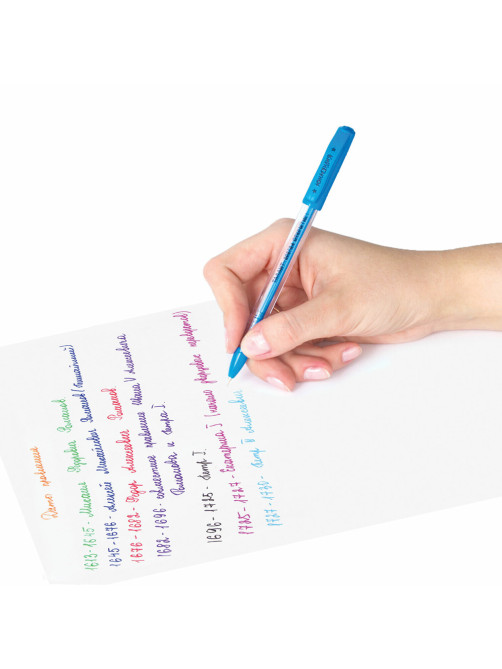 Даты правления
1613-1645 - Михаил Федорович Романов
1645-1676 - Алексей Михайлович Романов (Тишайший)
1676-1682 - Федор Алексеевич Романов
1682-1696 - совместное правление Ивана V Алексеевича
Романова и Петра I
1696-1725 - Петр I.
1725-1727 - Екатерина I (начало дворцовых переворотов)
1727-1730 - Петр II Алексеевич